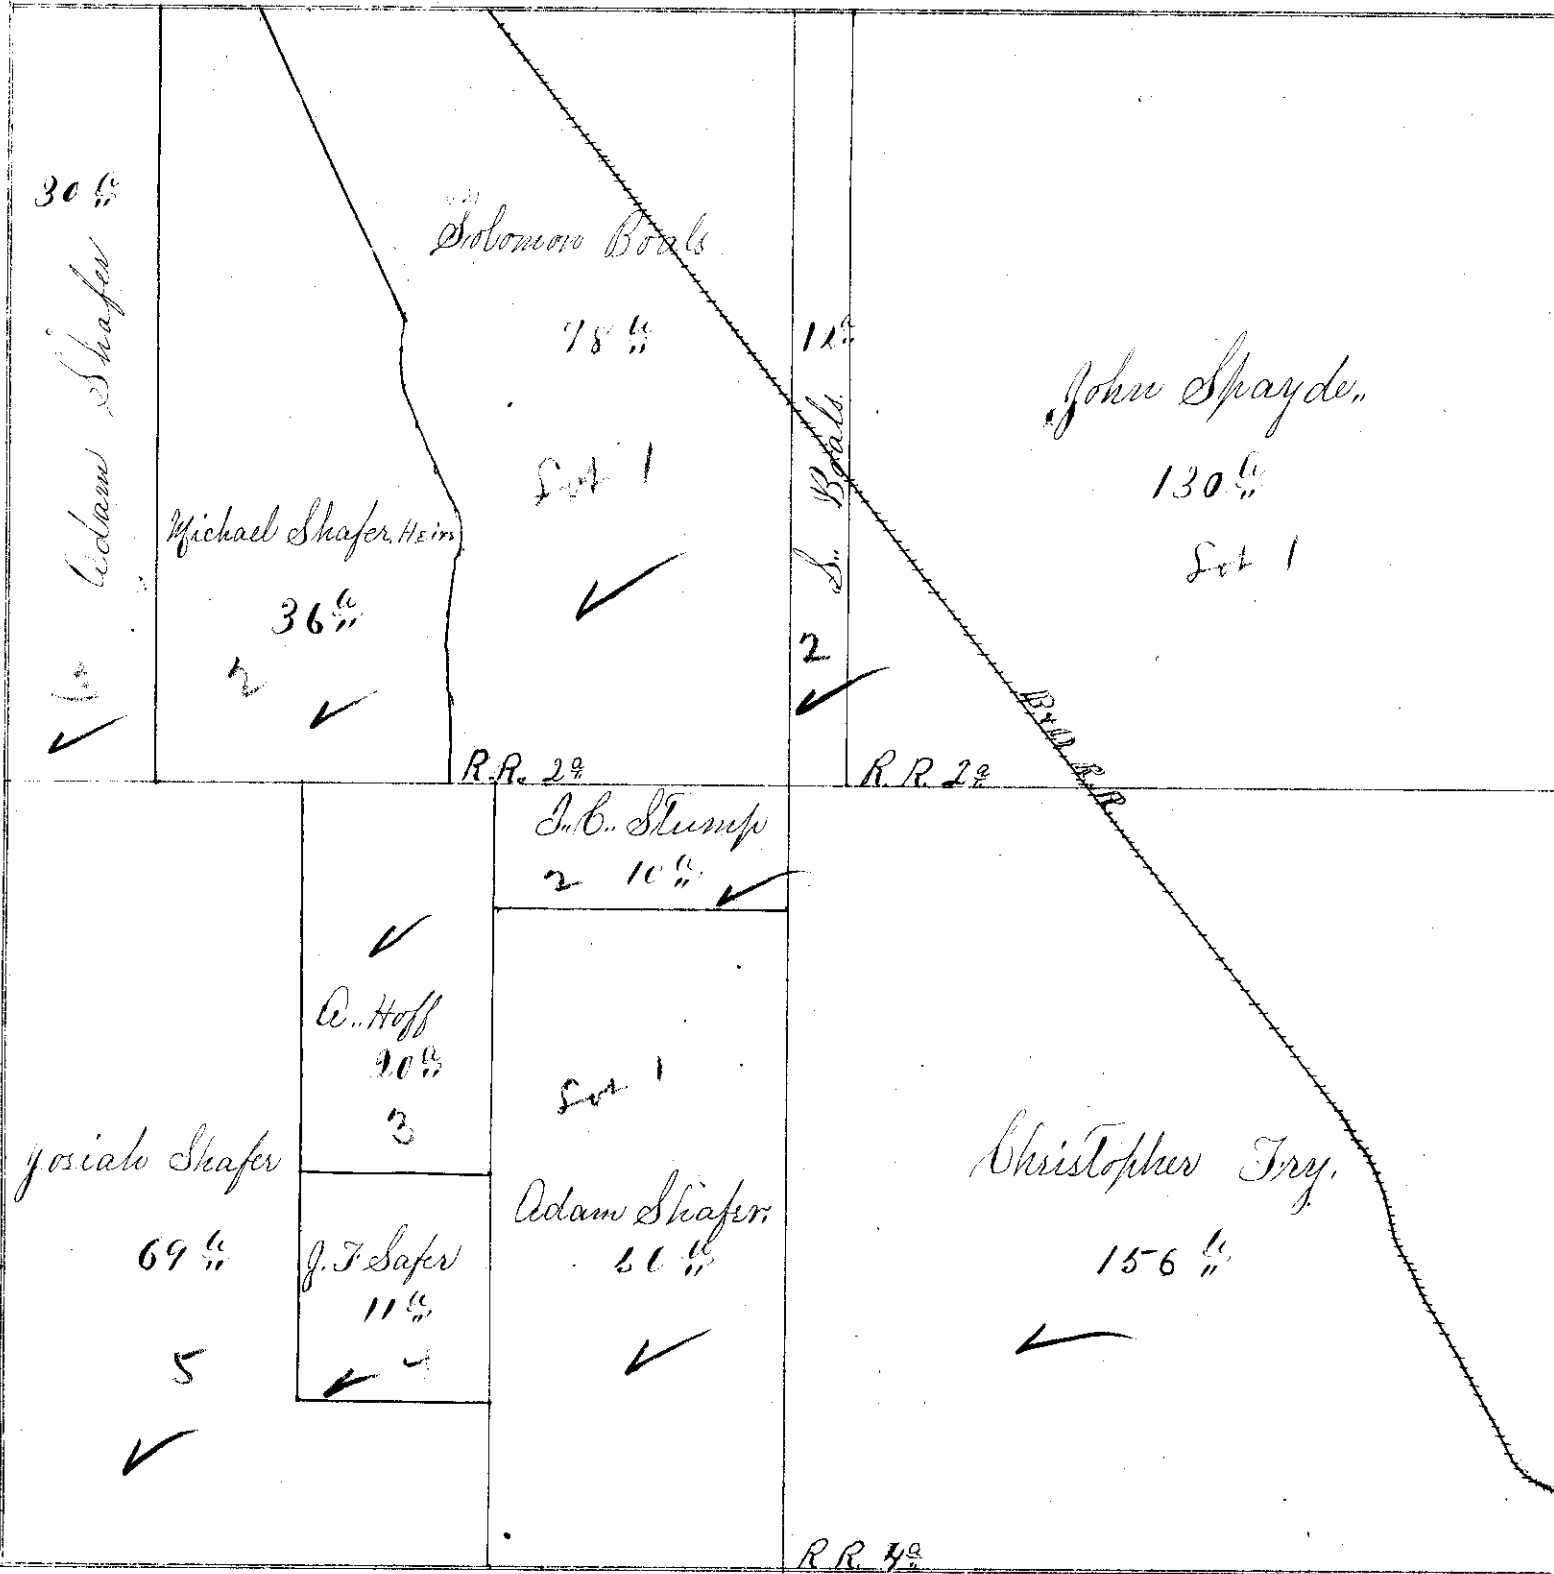 30 a
Adam Shafer
Michael Shafer. Heirs
36 a
2
Solomon Boals
78 a
Lot 1
R.R. 2a
12 a
S. Boals.
2
John Spayde.
130 a
Lot 1
R.R. 2a
B & O R.R.
J. C. Stump
2 10 a
A. Hoff
20 a
3
Lot 1
Josiah Shafer
69 a
5
J. F. Safer
11 a
4
Adam Shafer.
Christopher Fry.
156 a
R.R. 4a